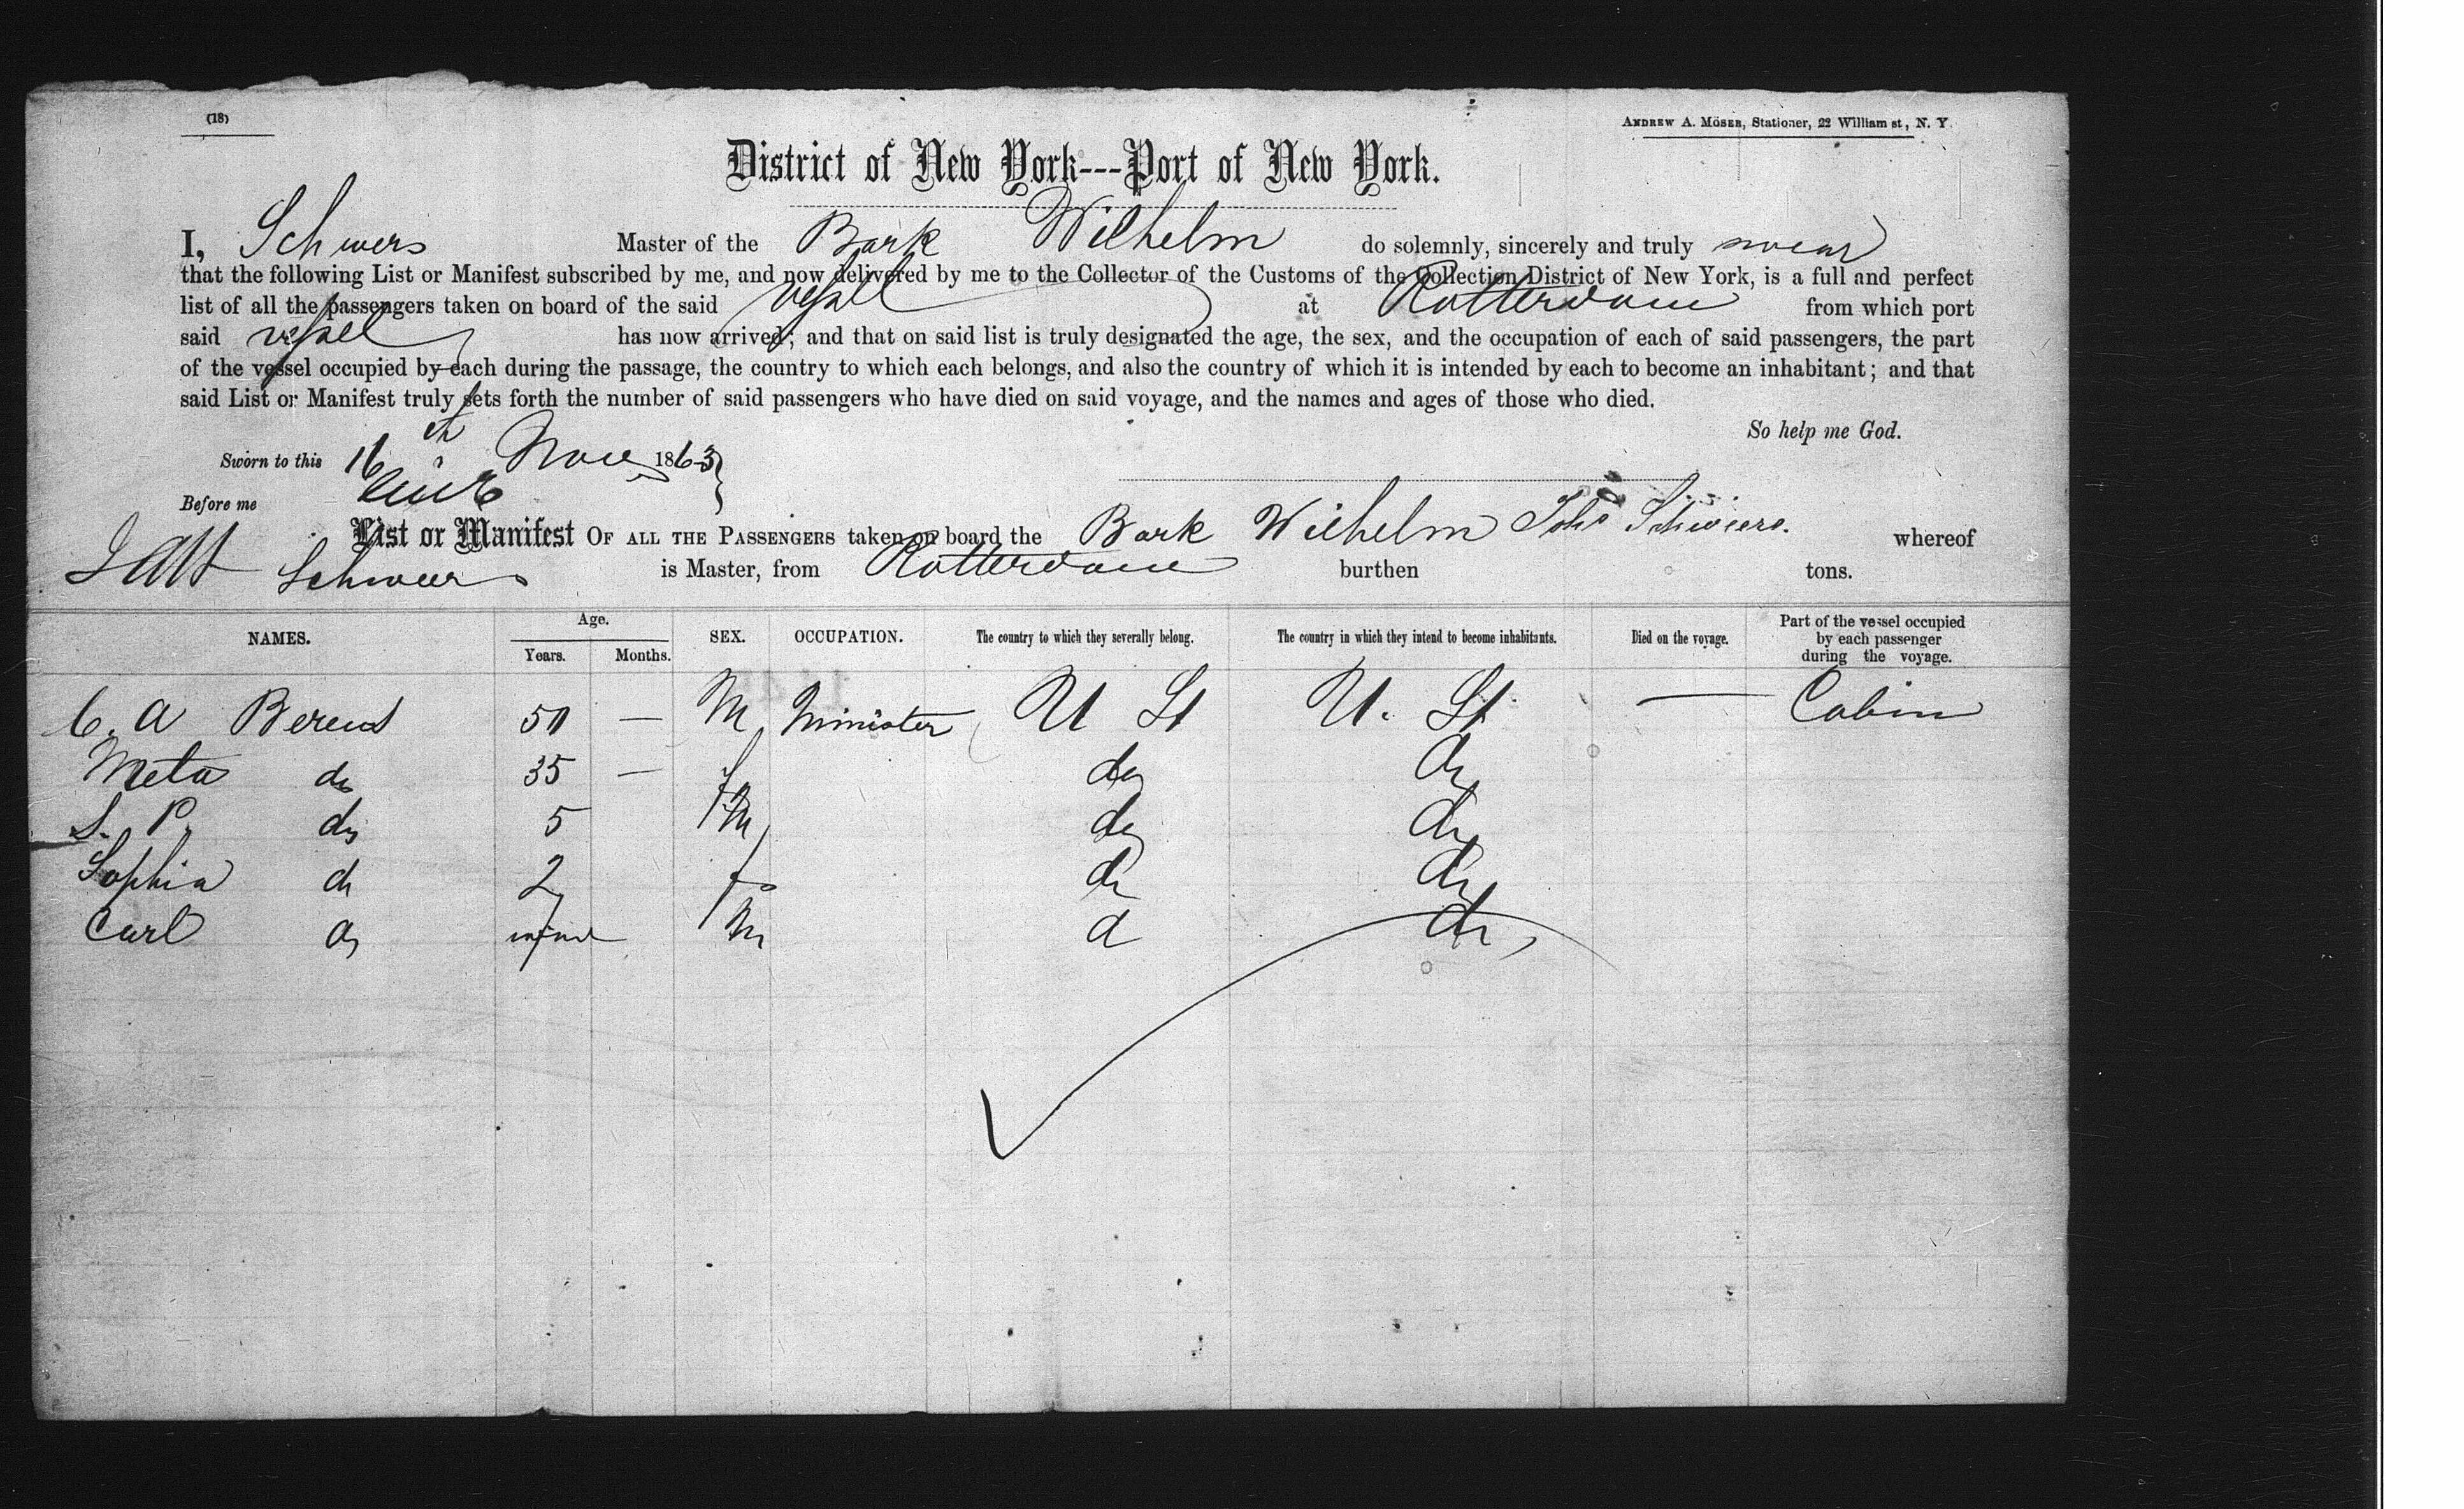 (18)
ANDREW A. MÖSER, Stationer, 22 William st, N. Y.
District of New York---Port of New York.
I, Schwers Master of the Bark Wilhelm do solemnly, sincerely and truly swear
that the following List or Manifest subscribed by me, and now delivered by me to the Collector of the Customs of the Collection District of New York, is a full and perfect
list of all the passengers taken on board of the said vessell at Rotterdam from which port
said vessell has now arrived; and that on said list is truly designated the age, the sex, and the occupation of each of said passengers, the part
of the vessel occupied by each during the passage, the country to which each belongs, and also the country of which it is intended by each to become an inhabitant; and that
said List or Manifest truly sets forth the number of said passengers who have died on said voyage, and the names and ages of those who died.
So help me God.
Sworn to this 16th Nov 1863
Before me
Schwiers.
List or Manifest OF ALL THE PASSENGERS taken on board the Bark Wilhelm whereof
Schweers is Master, from Rotterdam burthen tons.
NAMES. Age. Years. Months. SEX. OCCUPATION. The country to which they severally belong. The country in which they intend to become inhabitants. Died on the voyage. Part of the vessel occupied by each passenger during the voyage.
C. A Berend 50 — M Minister U St U. St — Cabin
Meta do 35 — f do do
S. P. do 5 M do do
Sophia do 2 f do do
Carl do infant M do do